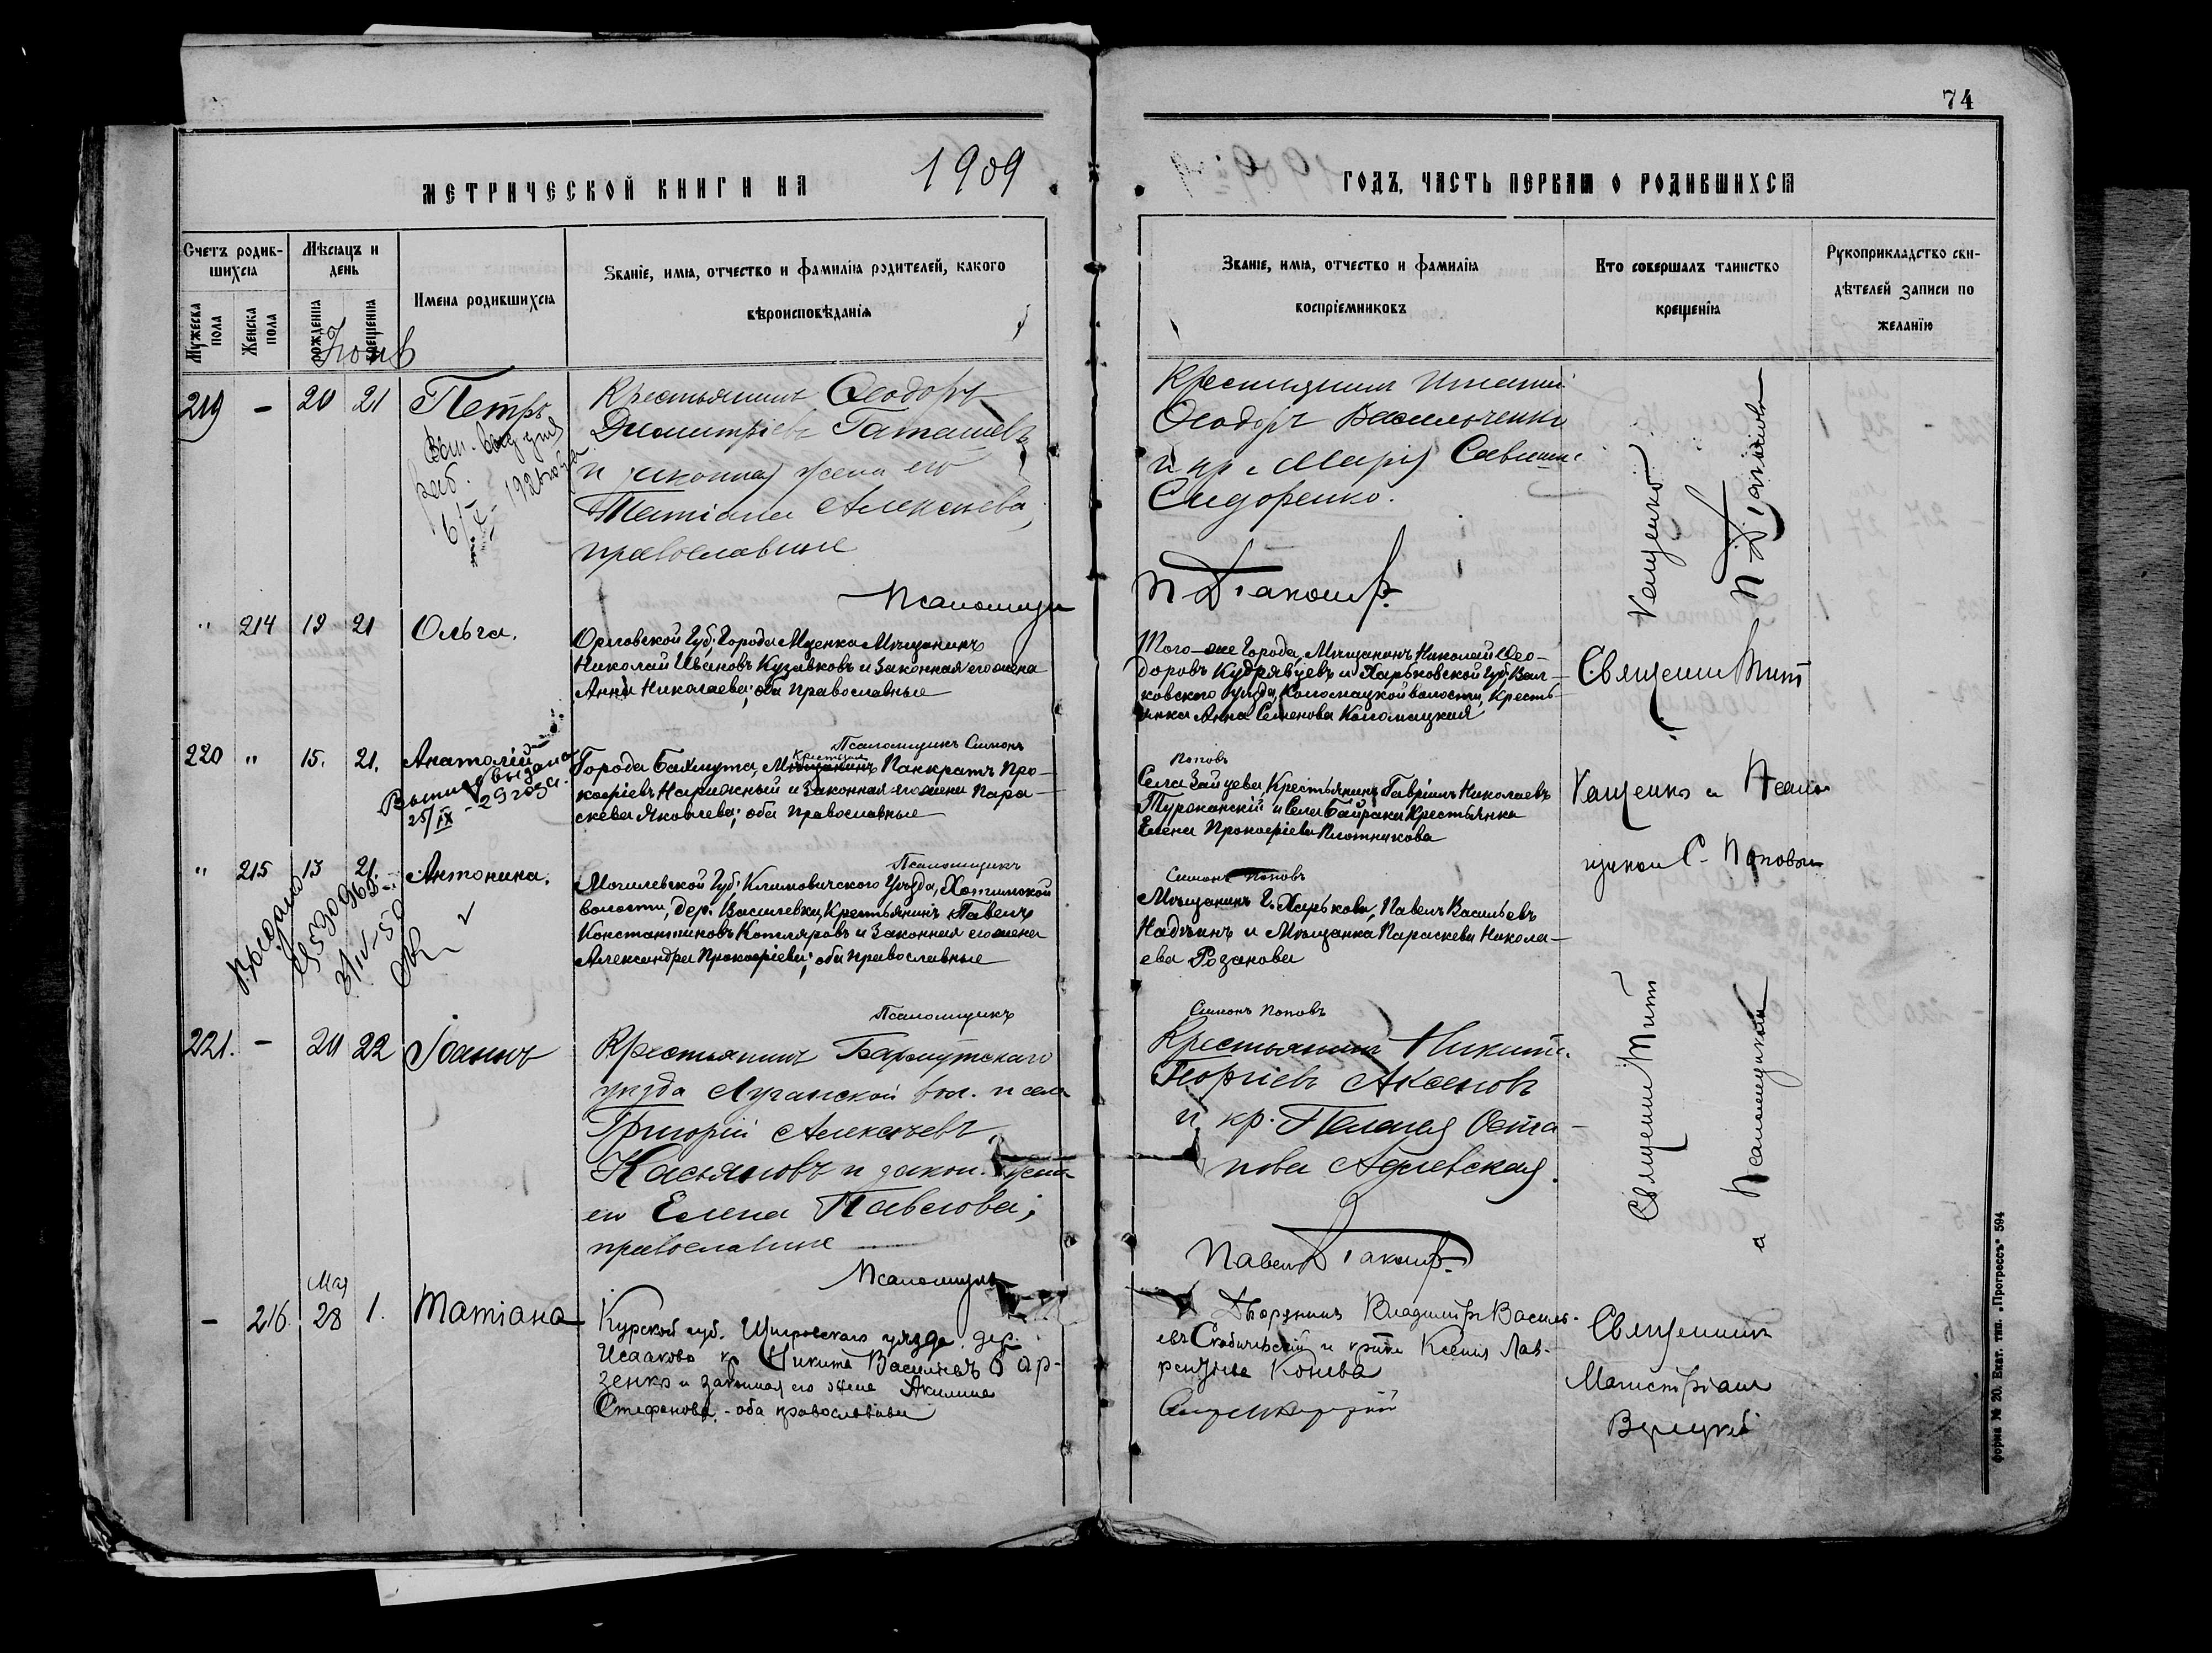 74
МЕТРИЧЕСКОЙ КНИГИ НА 1909
ГОДЪ, ЧАСТЬ ПЕРВАЯ О РОДИВШИХСЯ
Счетъ родив-
шихся
Мужеска пола
Женска пола
Мѣсяцъ и
день
рожденія
крещенія
Имена родившихся
Званіе, имя, отчество и фамилія родителей, какого
вѣроисповѣданія
Званіе, имя, отчество и фамилія
воспріемниковъ
Кто совершалъ таинство
крещенія
Рукоприкладство сви-
дѣтелей записи по
желанію
219 - 20 21 Петръ
Крестьянинъ Ѳеодоръ
Димитріевъ Гаташевъ
и законная жена его
Татіана Алексѣева,
православные
Псаломщикъ
Крестьянинъ
Ѳеодоръ Васильченко
и кр. Марія Саввина
Сидоренко.
П Діаконовъ
" 214 19 21 Ольга.
Орловской Губ; Города Мценка Мѣщанинъ
Николай Ивановъ Кузавковъ и Законная его жена
Анна Николаева; оба православные
Псаломщикъ Симонъ
Того-же Города, Мѣщанинъ Николай Ѳео-
доровъ Кудрявцевъ и Харьковской Губ; Вал-
ковского уѣзда, Коломацкой волости, Кресть-
янка Анна Семенова Коломацкая
Поповъ
Священ Мит
220 " 15. 21. Анатолій
выдана
25/IX - 29 года.
Города Бахмута, Мѣщанинъ Панкратъ Про-
кофіевъ Нарижный и Законная его жена Пара-
скева Яковлева; оба православные
Псаломщикъ
Села Зайцева, Крестьянинъ Гавріилъ Николаевъ
Туроканскій и Села Байраки Крестьянка
Елена Прокофіева Плотникова
Симонъ Поповъ
Ващенко и Псалом
щикъ С. Поповъ
" 215 13 21. Антонина.
Выдано
Могилевской Губ; Климовичского Уѣзда, Хотимской
волости, дер. Василевки, Крестьянинъ Павелъ
Константиновъ Котляровъ и Законная его жена
Александра Прокофіева; оба православные
Псаломщикъ
Мѣщанинъ Г. Харькова, Павелъ Васильевъ
Надѣинъ и Мѣщанка Параскева Никола-
ева Розанова
Симонъ Поповъ
221. - 20 22 Іоаннъ
Крестьянинъ Бахмутскаго
уѣзда Луганской вол. и села
Григорій Алексѣевъ
Касьяновъ и закон. жена
его Елена Павлова;
православные
Псаломщикъ
Крестьянинъ Никита
Георгіевъ Аксеновъ
и кр. Пелагея Оста-
пова
Павелъ Діаконовъ
Священ Мит
а Псаломщикомъ
Мая
- 216. 28 1. Татіана
Курской губ. Щигровскаго уѣзда, дер.
Исааково кр Никита Васильевъ Бар-
зенко и законная его жена Акилина
Стефанова, - оба православные
Дворянинъ Владимиръ Василь-
евъ Скабичевскій и кр-нка Ксенія Лав-
рентьева Конева
Священникъ
Магистріанъ
форма № 20. Екат. тип. „Прогрессъ“ 594